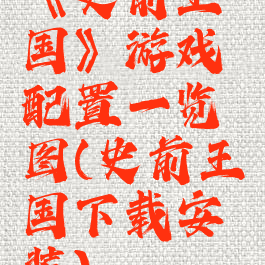 《史前王
国》游戏
配置一览
图(史前王
国下载安
装)